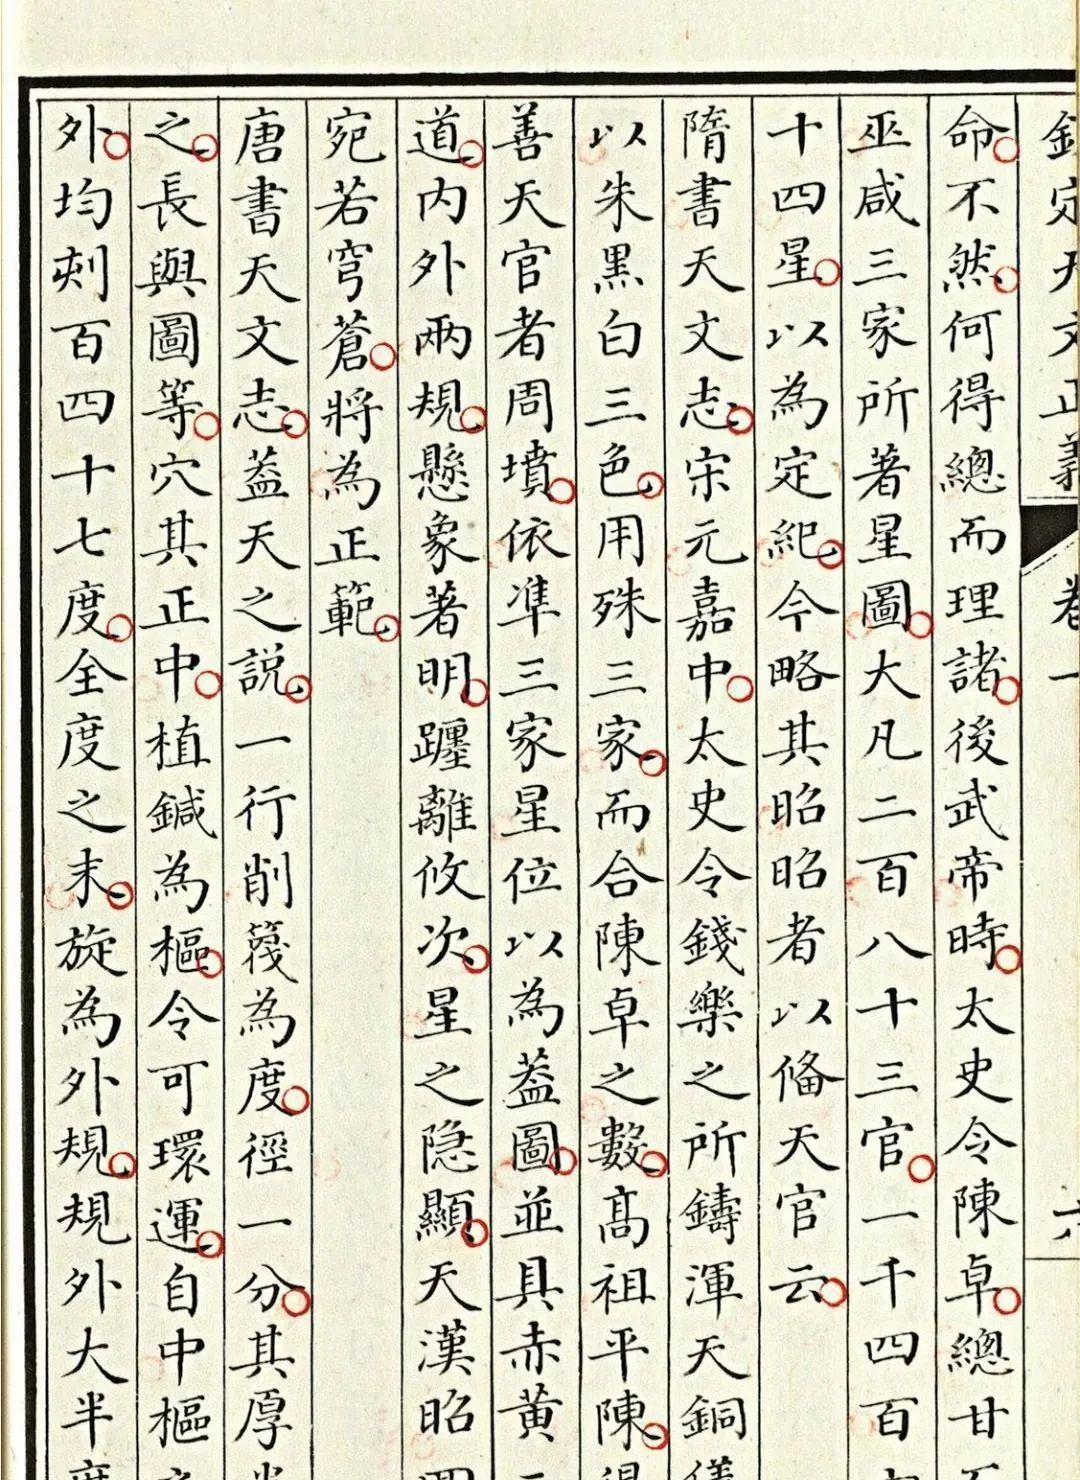 欽定天文正義 卷一 六
命不然何得總而理諸後武帝時太史令陳卓總甘
巫咸三家所著星圖大凡二百八十三官一千四百
十四星以為定紀今略其昭昭者以俻天官云
隋書天文志宋元嘉中太史令錢樂之所鑄渾天銅儀
以朱黒白三色用殊三家而合陳卓之數髙祖平陳得
善天官者周墳依凖三家星位以為葢圖並具赤黄
道内外兩規懸象著明躔離攸次星之隐顯天漢昭
宛若穹蒼將為正範
唐書天文志葢天之説一行削篾為度徑一分其厚半
之長與圖等穴其正中植鍼為樞令可環運自中樞
外均刻百四十七度全度之末旋為外規規外大半度